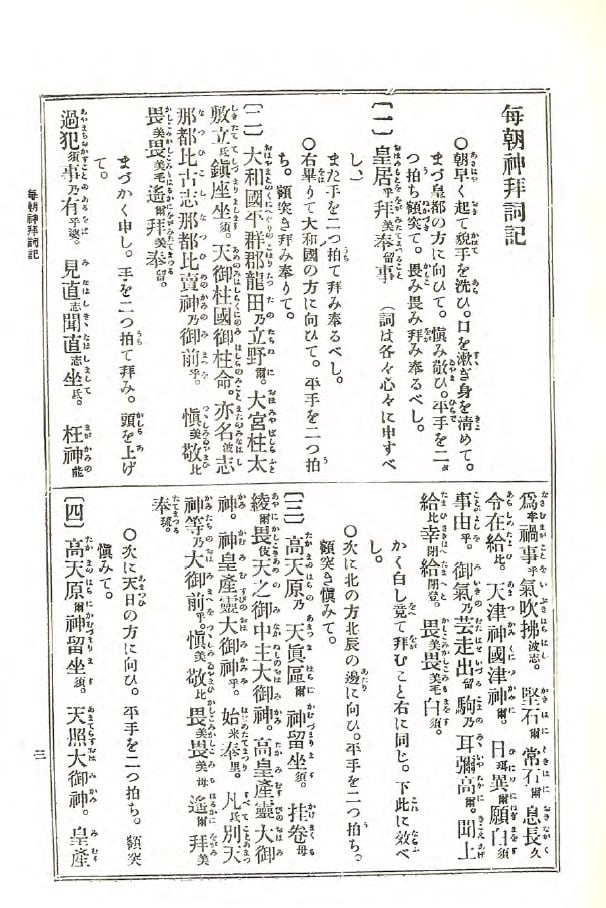 每朝神拜詞記
〇朝早く起て貌手を洗ひ。口を漱ぎ身を清めて。
まづ皇都の方に向ひて。愼み敬ひ。平手を二
つ拍ち額突て。畏み畏み拜み奉るべし。
〔一〕皇居乎拜美奉留事（詞は各々心々に申すべ
し、）
また手を二つ拍て拜み奉るべし。
〇右畢りて大和國の方に向ひて。平手を二つ拍
ち。額突き拜み奉りて。
〔二〕大和國平群郡龍田乃立野爾。大宮柱太
敷立氐鎭座坐須。天御柱國御柱命。亦名波志
那都比古志那都比賣神乃御前乎。愼美敬比
畏美畏美毛遙爾拜美奉留。
まづかく申し。手を二つ拍て拜み。頭を上げ
て。
過犯須事乃有乎婆。見直志聞直志坐氐。枉神能
爲牟禍事乎氣吹拂波志。堅石爾常石爾息長久
令在給比。天津神國津神爾。日珥異爾願白須
事由乎。御氣乃芸走出留駒乃耳彌高爾。聞上
給比幸閉給閉登。畏美畏美毛白須。
かく白し竟て拜むこと右に同じ。下此に效べ
し。
〇次に北の方北辰の邊に向ひ。平手を二つ拍ち。
額突き愼みて。
〔三〕高天原乃天眞區爾神留坐須。挂卷母
綾爾畏伎天之御中主大御神。高皇產靈大御
神。神皇產靈大御神乎。始米奉里。凡氐別天
神等乃大御前乎。愼美敬比畏美畏美母遙爾拜美
奉琉。
〇次に天日の方に向ひ。平手を二つ拍ち。額突
愼みて。
〔四〕高天原爾神留坐須。天照大御神。皇產
每朝神拜詞記
三